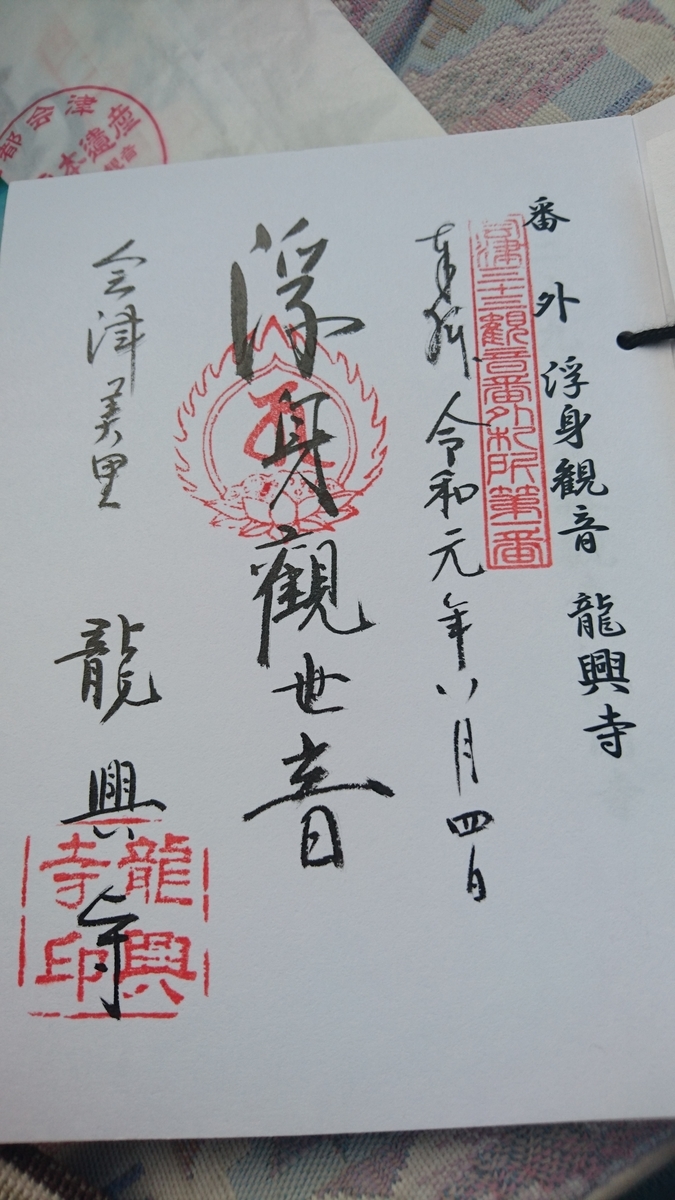 番外 浮身観音 龍興寺
会津三十三観音番外札所第一番
奉拝 令和元年八月四日
浮身觀世音
会津美里 龍興寺
龍興寺印
会津
日本遺産